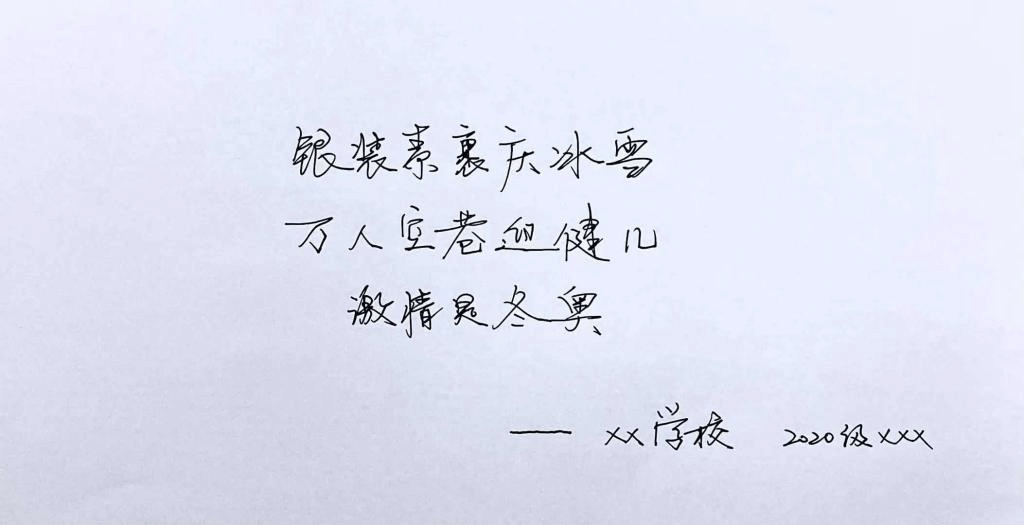 银装素裹庆冰雪
万人空巷迎健儿
激情是冬奥
—— xx学校 2020级xxx